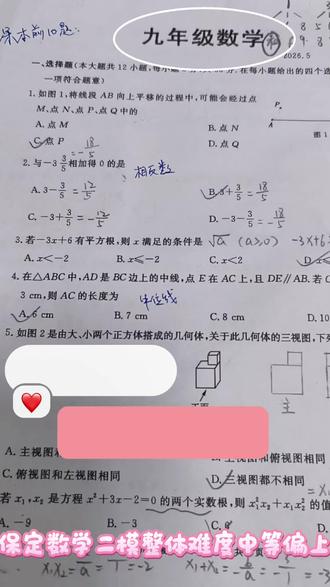 课本前10题:
九年级数学
2026.5
一、选择题(本大题共12小题,每小题
在每小题给出的四个选
一项符合题意)
1. 如图1,将线段AB向上平移的过程中,可能会经过点
M、点N、点P、点Q中的
A. 点M
B. 点N
C. 点P
D. 点Q
图1
2. 与-3 3/5 相加得0的是
相反数
A. 3-3/5 = 12/5
B. 3+3/5 = 18/5
C. -3+3/5 = -12/5
D. -3-3/5 = -18/5
3. 若-3x+6有平方根,则x满足的条件是
√a (a≥0)
A. x<-2
B. x≤-2
C. x<2
4. 在△ABC中,AD是BC边上的中线,点E在AC上,且DE∥AB.若
3 cm,则AC的长度为
中位线
A. 6 cm
B. 7 cm
C. 8 cm
D. 10
5. 如图2是由大、小两个正方体搭成的几何体,关于此几何体的三视图,下列
主
正面
A. 主视图和
B. 主视图和俯视图相同
C. 俯视图和左视图相同
D. 三视图都不相同
若x₁,x₂是方程x²+3x-2=0的两个实数根,则x₁²x₂+x₁x₂²的值
A. -9
B. -3
保定数学二模整体难度中等偏上